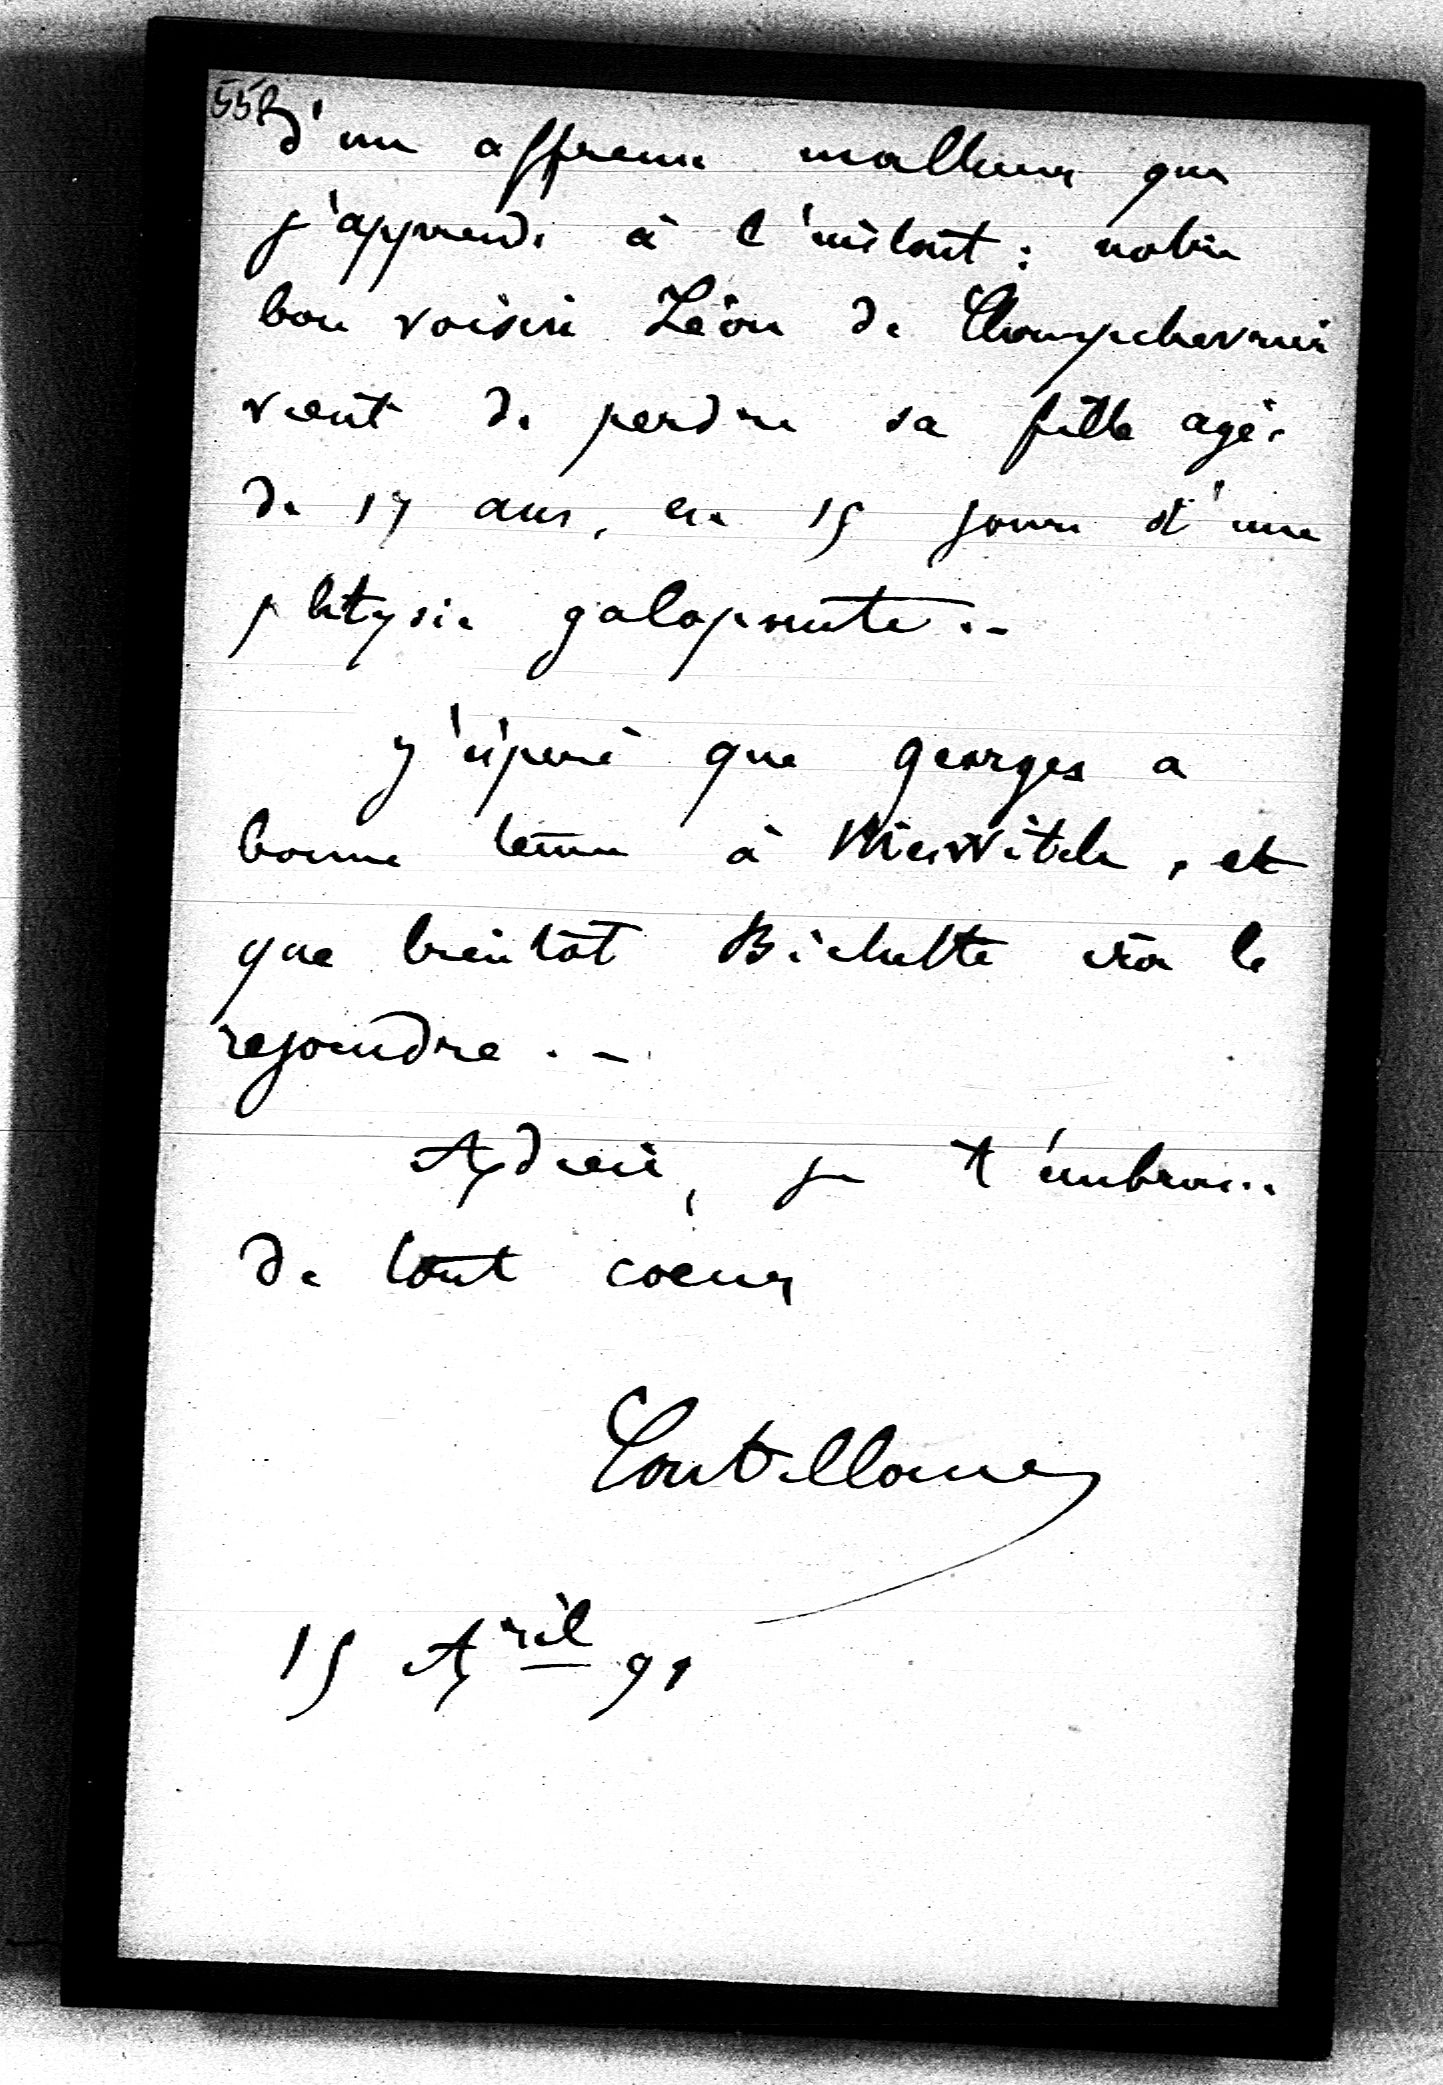 552
d'un affreux malheur que
j'apprends à l'instant : notre
bon voisin Léon de Champchevrier
vient de perdre sa fille agée
de 17 ans, en 15 jours d'une
phtysie galopante..
J'espère que Georges a
bonne tenue à, et
que bientôt Bichette ira le
rejoindre . -
Adieu, je t'embrasse
de tout coeur
15 Avril 91